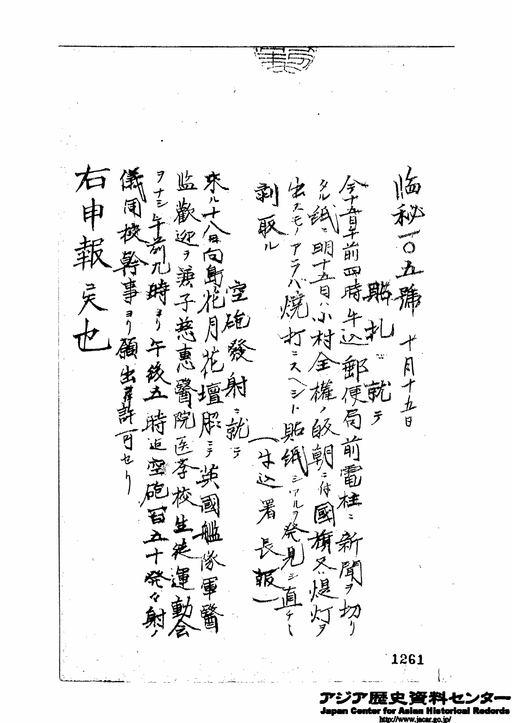 臨秘一〇五號 十月十五日
貼札ニ就テ
今十五日午前四時牛込郵便局前電柱ニ新聞ヲ切リ
タル紙ニ明十五日小村全權ノ皈朝ニ付國旗及提灯ヲ
出スモノアラバ燒打ニスヘシト貼紙シアルヲ発見シ直チニ
剥取ル
(牛込署長報)
空砲發射ニ就テ
来ル十八日向島花月花壇ニテ英國艦隊軍醫
監歡迎ヲ兼子慈惠醫院医学校生徒運動会
ヲナシ午前九時ヨリ午後五時迄空砲百五十発々射ノ
儀同校幹事ヨリ願出許可セリ
右申報候也
1261
アジア歴史資料センター
Japan Center for Asian Historical Records
http://www.jacar.go.jp/